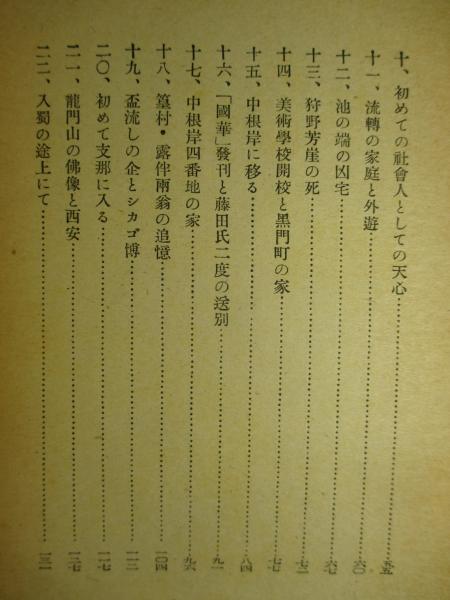 十、初めての社會人としての天心……五五
十一、流轉の家庭と外遊……六〇
十二、池の端の凶宅……六七
十三、狩野芳崖の死……七三
十四、美術學校開校と黑門町の家……七七
十五、中根岸に移る……八四
十六、「國華」發刊と藤田氏二度の送別……九一
十七、中根岸四番地の家……九六
十八、篁村・露伴兩翁の追憶……一〇四
十九、盃流しの企とシカゴ博……一一三
二〇、初めて支那に入る……一一七
二一、龍門山の佛像と西安……一二七
二二、入蜀の途上にて……一三一